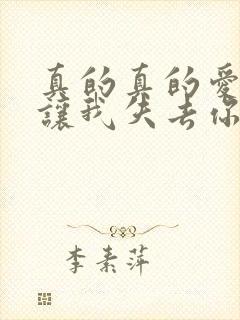 真的真的愛
讓我失去你
李素萍